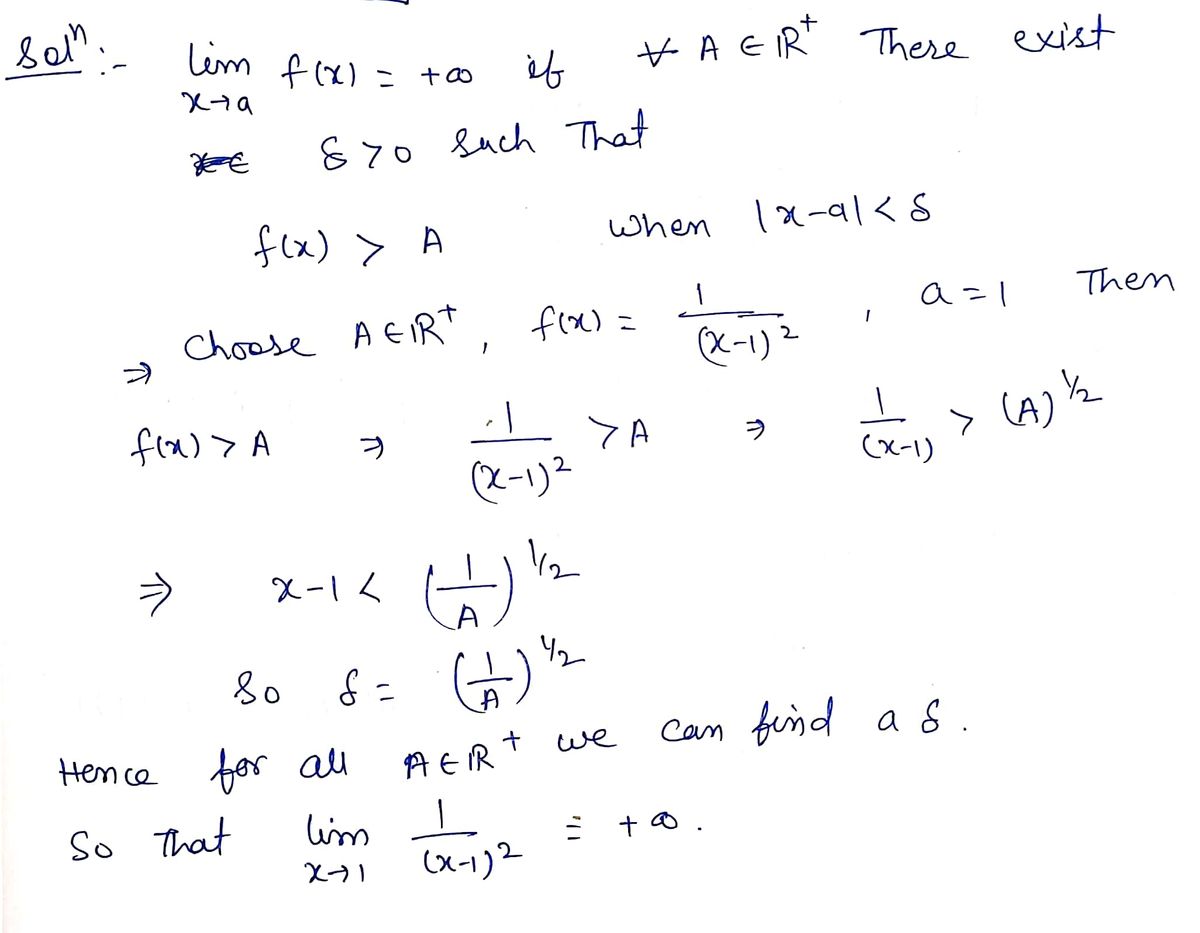 Solⁿ:- lim x→a f(x) = +∞ if ∀ A ∈ ℝ⁺ There exist
δ > 0 such That
f(x) > A when |x-a| < δ
⇒ Choose A ∈ ℝ⁺, f(x) = 1/(x-1)², a = 1 Then
f(x) > A ⇒ 1/(x-1)² > A ⇒ 1/(x-1) > (A)^1/2
⇒ x-1 < (1/A)^1/2
So δ = (1/A)^1/2
Hence for all A ∈ ℝ⁺ we can find a δ.
So That lim x→1 1/(x-1)² = +∞.